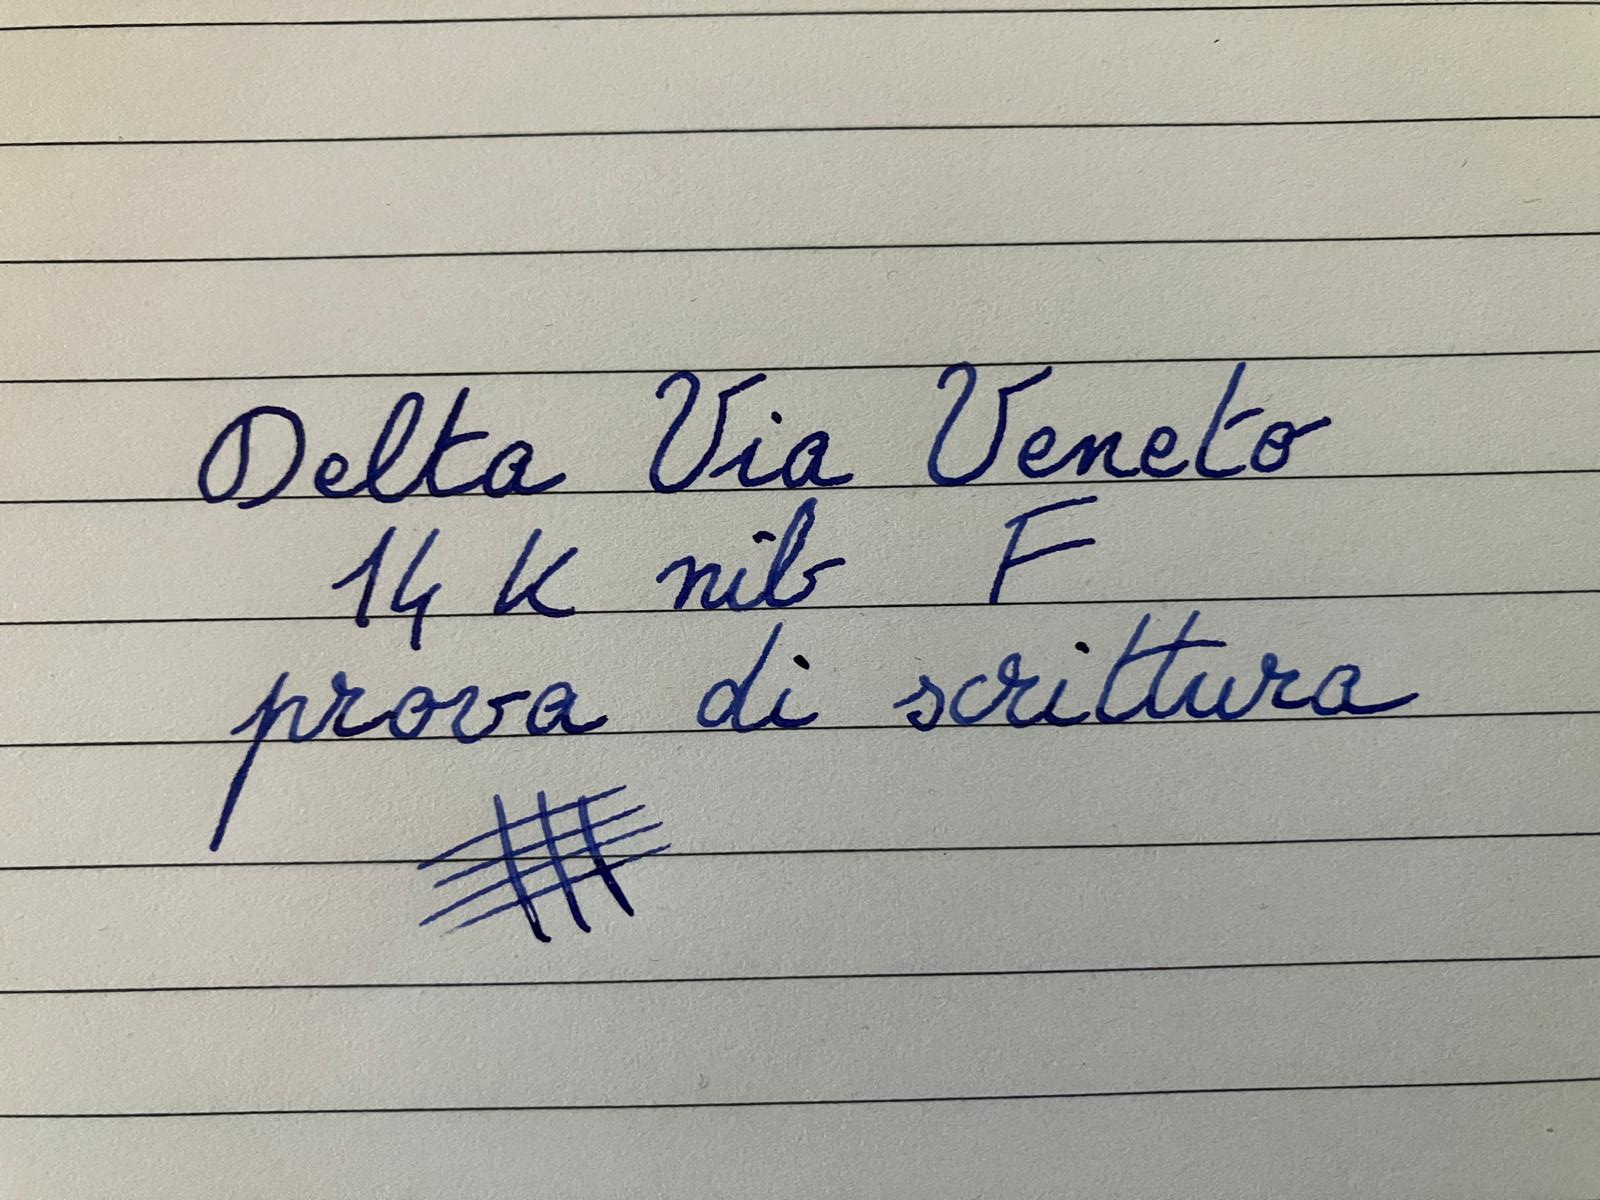 Delta Via Veneto
14 K nib F
prova di scrittura